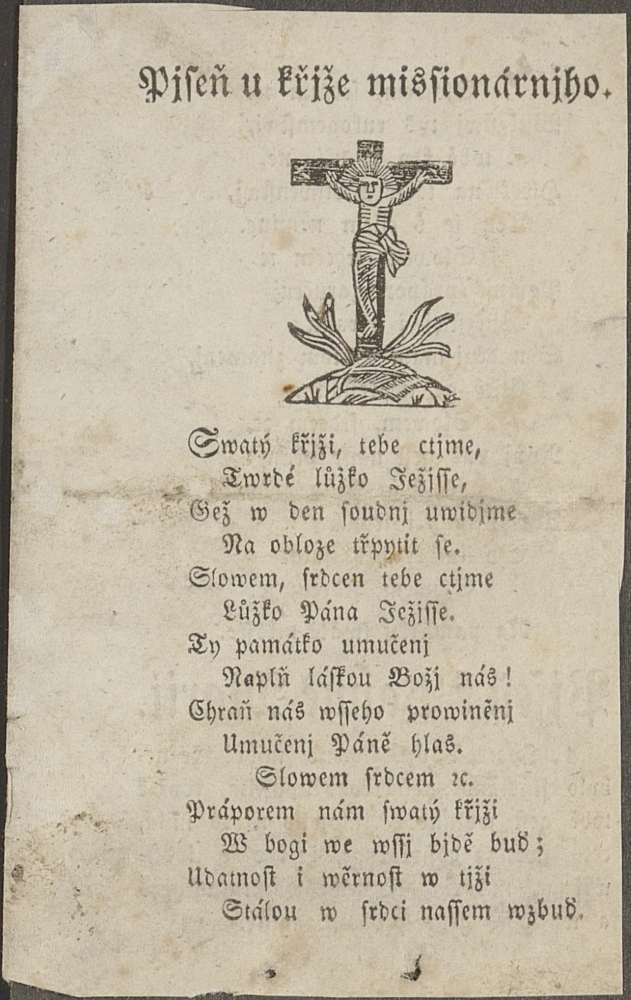 Pjseň u křjže missionárnjho.
Swatý křjži, tebe ctjme,
Twrdé lůžko Ježjsse,
Gež w den soudnj uwidjme
Na obloze třpytit se.
Slowem, srdcen tebe ctjme
Lůžko Pána Ježjsse.
Ty památko umučenj
Naplň láskou Božj nás!
Chraň nás wsseho prowiněnj
Umučenj Páně hlas.
Slowem srdcem ꝛc.
Práporem nám swatý křjži
W bogi we wssj bjdě buď;
Udatnost i wěrnost w tjži
Stálou w srdci nassem wzbuď.